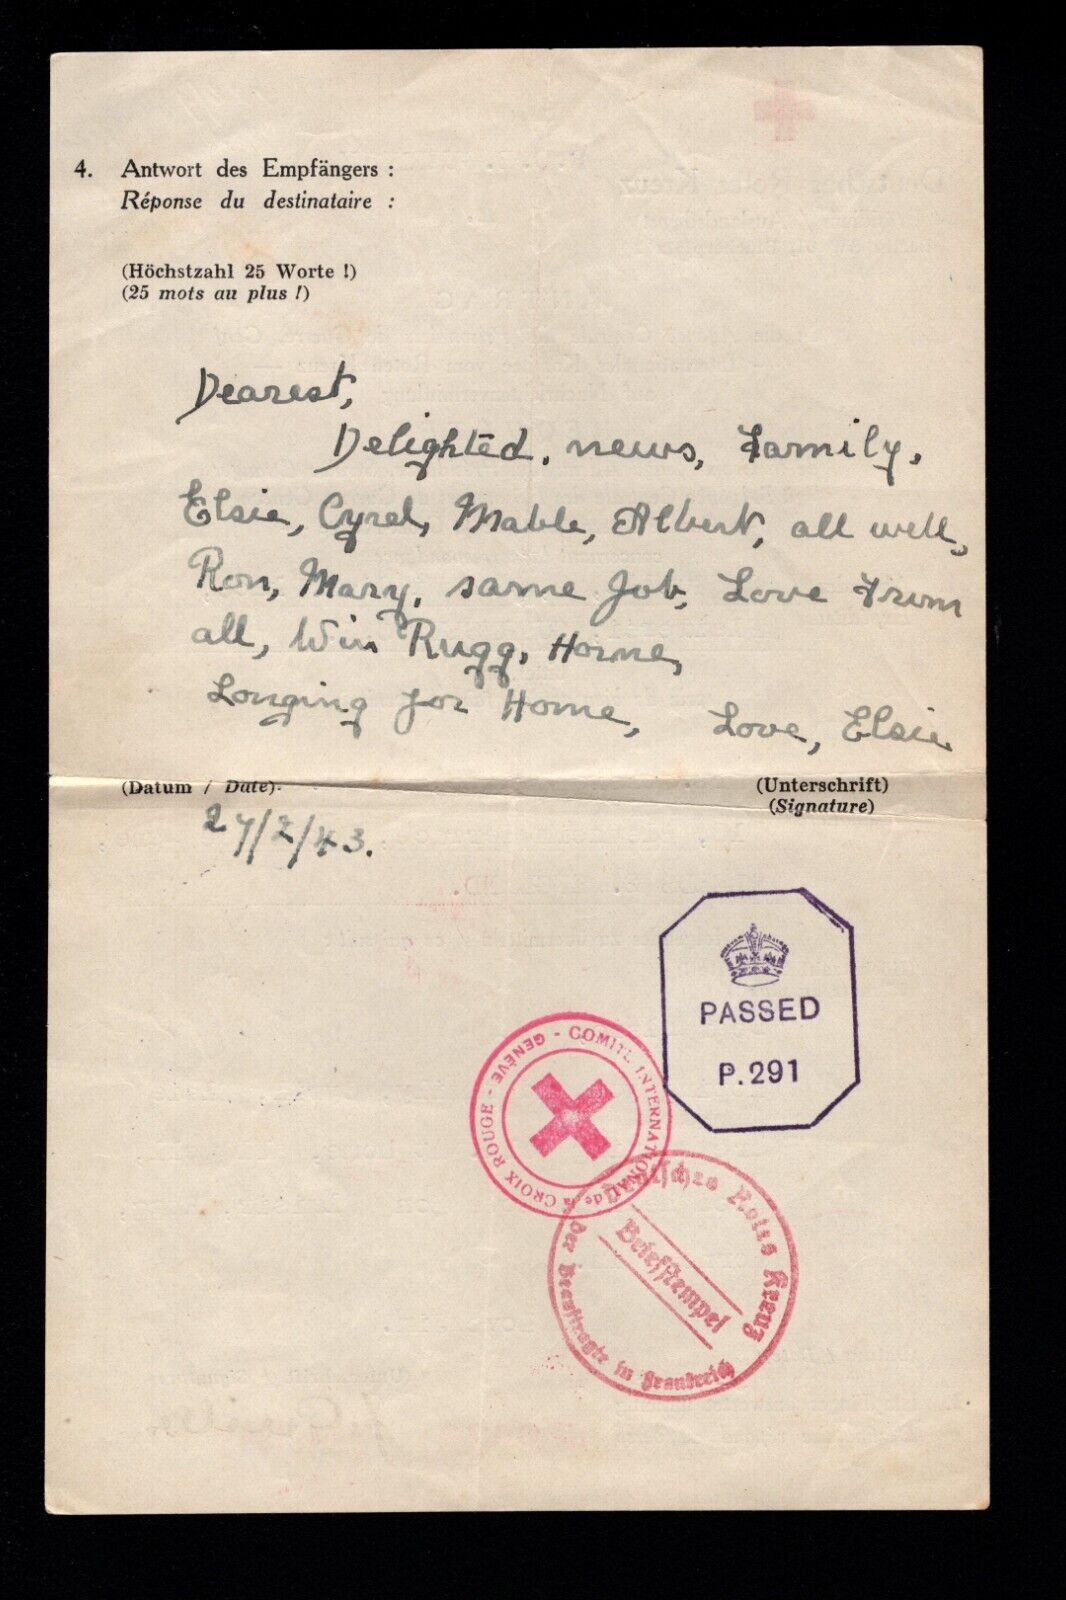 4. Antwort des Empfängers :
Réponse du destinataire :
(Höchstzahl 25 Worte !)
(25 mots au plus !)
Dearest,
Delighted, news, Family,
Elsie, Cyrel, Mable, Albert, all well,
Ron, Mary, same Job, Love From
all, Win Rugg, Horne,
Longing for Home, Love, Elsie
(Datum / Date)
(Unterschrift)
(Signature)
27/2/43.
PASSED
P.291
COMITÉ INTERNATIONAL de la CROIX ROUGE - GENÈVE -
Deutsches Rotes Kreuz
Briefstempel
Der Beauftragte in Frankreich